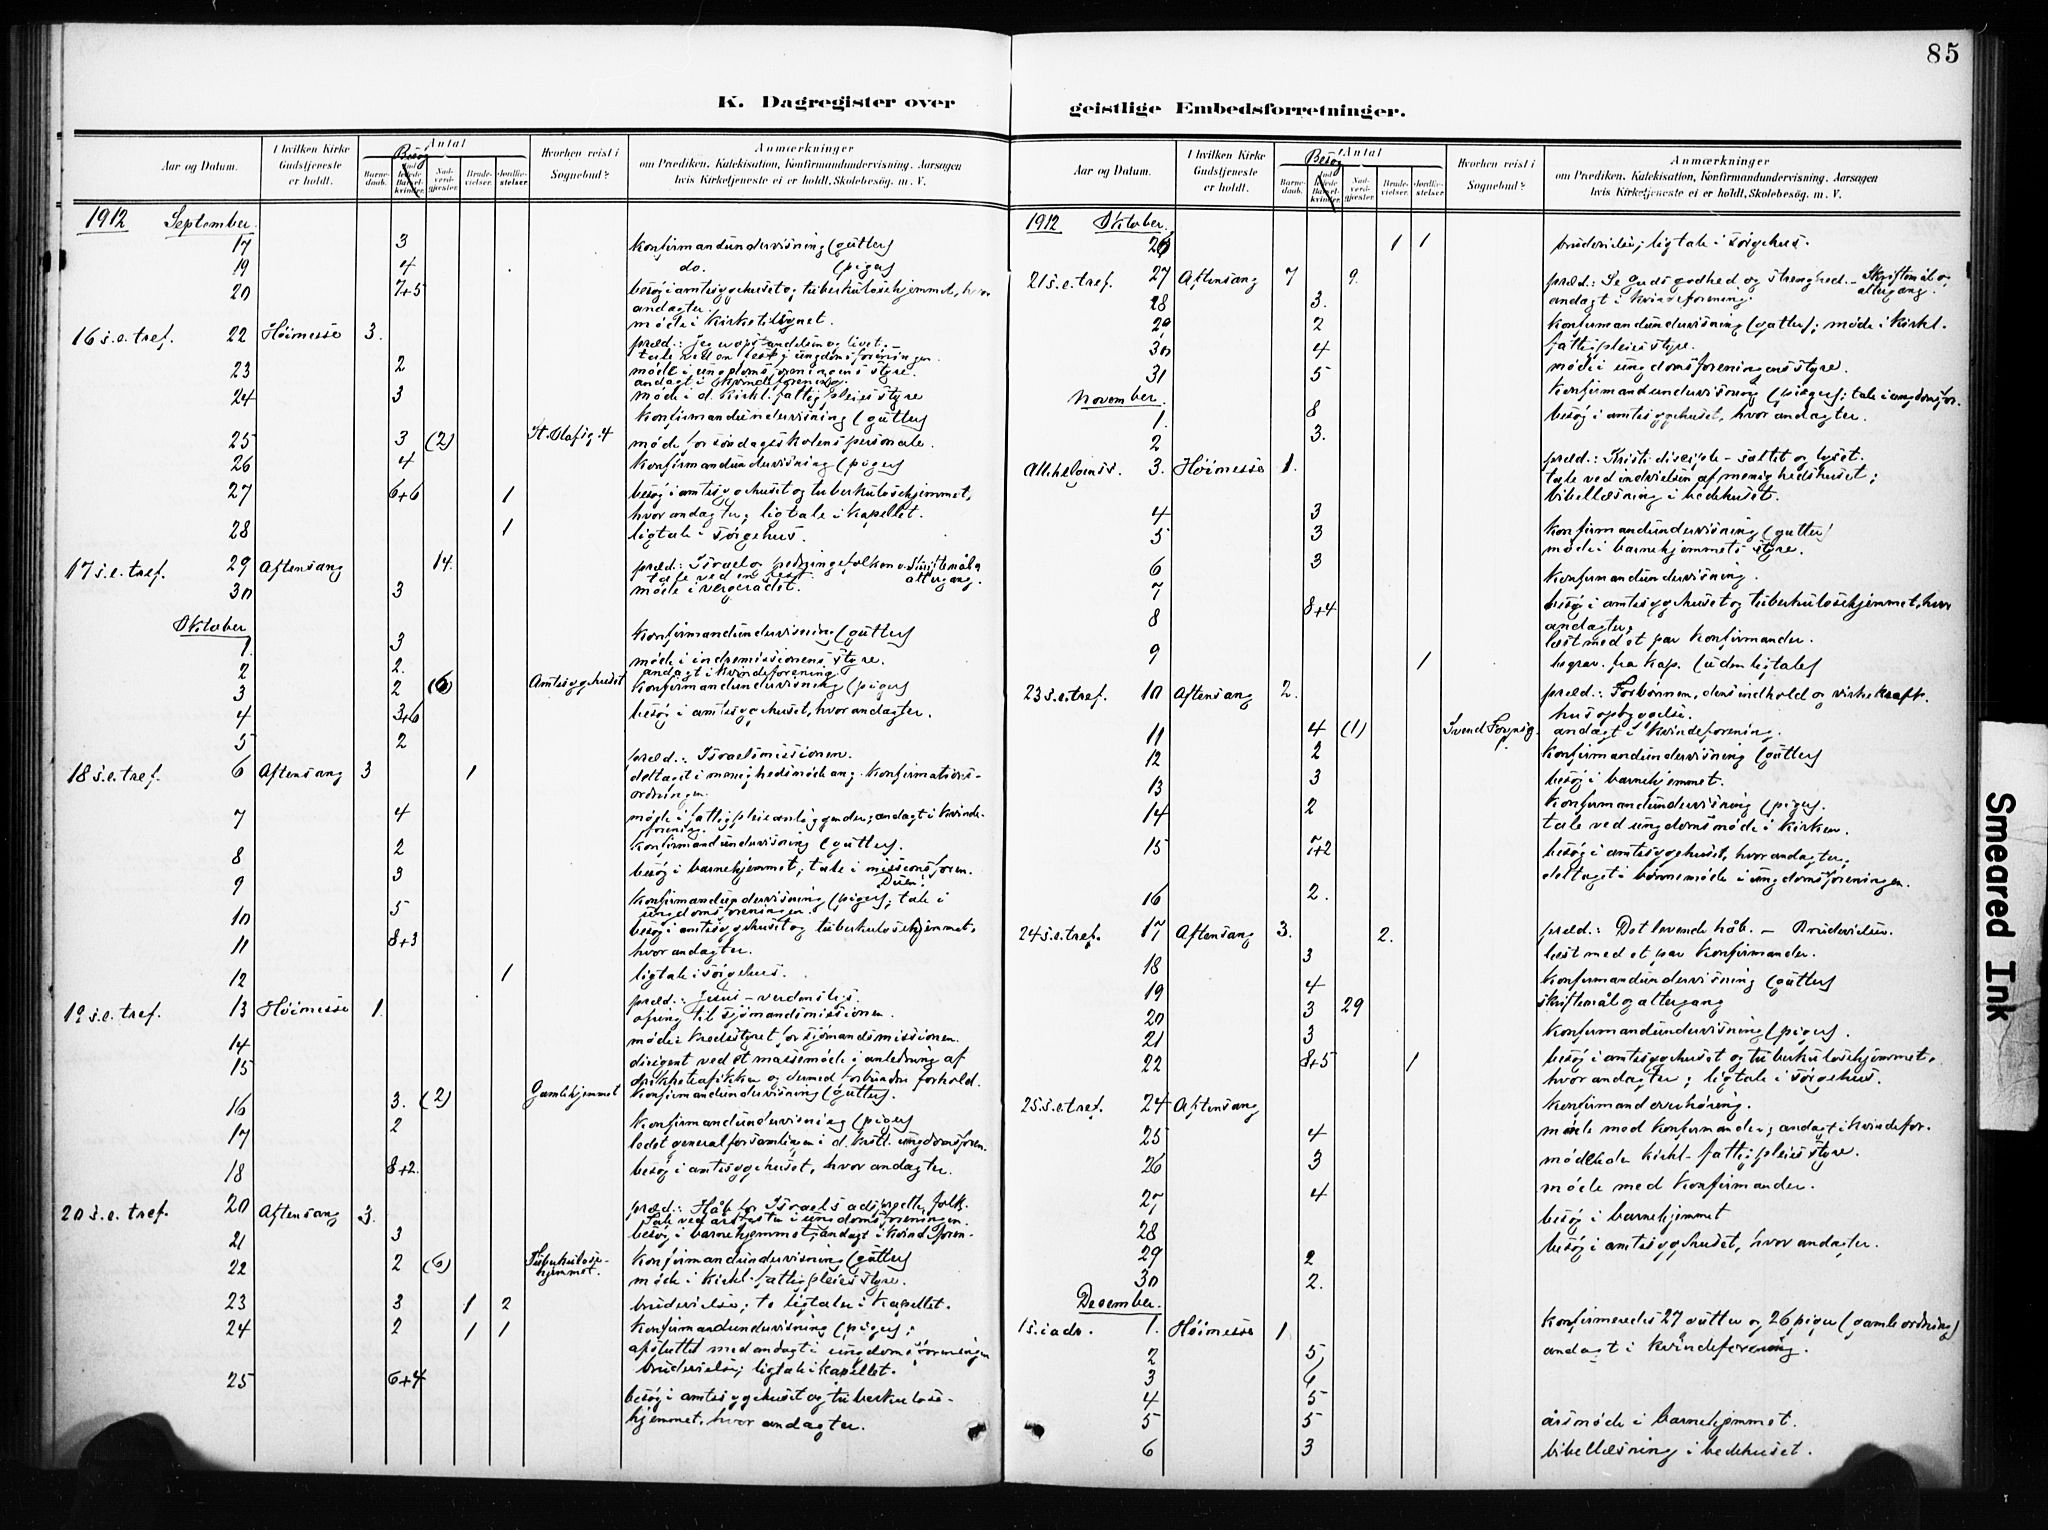 85
K. Dagregister over geistlige Embedsforretninger.
Aar og Datum. I hvilken Kirke Gudstjeneste er holdt. Antal Besøg Barnedaab. Indledede Barselkvinder. Nadverdgjester. Brudevielser. Jordfæstelser. Hvorhen reist i Sognebud? Anmærkninger om Prædiken, Katekisation, Konfirmandundervisning, Aarsagen hvis Kirketjeneste ei er holdt, Skolebesøg, m. V.
1912 September
17 3 konfirmandundervisning (gutter)
19 4 do. (piger)
20 7+5 besøg i amtssygehuset og tuberkulosehjemmet, hvor
andagter.
møde i kirketilsynet.
16 s.e.tref. 22 Høimesse 3. præd.: jeg er opstandelsen og livet. –
tale ved en fest i ungdomsforeningen.
23 2 møde i ungdomsforeningens styre.
andagt i kvindeforening.
24 3 møde i d. kirkl. fattigpleies styre
konfirmandundervisning (gutter)
25 3 (2) St. Olafsg. 4 møde for søndagsskolens personale.
26 4 konfirmandundervisning (piger)
27 6+6 1 besøg i amtssygehuset og tuberkulosehjemmet,
hvor andagter; ligtale i kapellet.
28 1 ligtale i sørgehus.
17 s.e.tref. 29 Aftensang 14. præd.: Israel og hedningefolkene. Skriftemål og
tale ved en fest. altergang.
30 3 møde i vergerådet.
Oktober
1 3 konfirmandundervisning (gutter)
2 2. møde i indremissionens styre.
andagt i kvindeforening.
3 2 (6) Amtssygehuset konfirmandundervisning (piger)
4 3+6 besøg i amtssygehuset, hvor andagter.
5 2
18 s.e.tref. 6 Aftensang 3 1 præd.: Israelsmissionen.
deltaget i menighedsmøde ang. konfirmations-
ordningen.
7 4 møde i fattigpleieanliggender; andagt i kvinde-
forening.
8 2 konfirmandundervisning (gutter).
9 3 besøg i barnehjemmet; tale i missionsforen.
Duen.
10 5 konfirmandundervisning (piger); tale i
ungdomsforeningen.
11 8+3 besøg i amtssygehuset og tuberkulosehjemmet,
hvor andagter.
12 1 ligtale i sørgehus.
19 s.e.tref. 13 Høimesse 1. præd.: Jesus – verdens lys.
ofring til sjømandsmissionen.
14 møde i kredsstyret for sjømandsmissionen.
15 dirigent ved et massemøde i anledning af
drikketrafikken og dermed forbundne forhold.
16 3. (2) Gamlehjemmet konfirmandundervisning (gutter).
17 2 konfirmandundervisning (piger)
ledet generalforsamlingen i d. kristl. ungdomsforen.
18 8+2 besøg i amtssygehuset, hvor andagter.
20 s.e.tref. 20 Aftensang 3. præd.: Håb for Israels adspredte folk.
Tale ved årsfesten i ungdomsforeningen.
21 3 besøg i barnehjemmet; andagt i kvindeforen.
22 2 (6) Tuberkulose-
hjemmet. konfirmandundervisning (gutter)
møde i kirkl. fattigpleies styre.
23 3 1 2 brudevielse; to ligtaler i kapellet.
24 2 1 1 konfirmandundervisning (piger);
afsluttet med andagt i ungdomsforeningen
brudevielse; ligtale i kapellet.
25 6+4 besøg i amtssygehuset og tuberkulose-
hjemmet, hvor andagter.
Aar og Datum. I hvilken Kirke Gudstjeneste er holdt. Antal Besøg Barnedaab. Indledede Barselkvinder. Nadverdgjester. Brudevielser. Jordfæstelser. Hvorhen reist i Sognebud? Anmærkninger om Prædiken, Katekisation, Konfirmandundervisning, Aarsagen hvis Kirketjeneste ei er holdt, Skolebesøg, m. V.
1912 Oktober
26 1 1 brudevielse; ligtale i sørgehus.
21 s.e.tref. 27 Aftensang 7 9. præd.: Se Guds godhed og strenghed. – Skriftemål og
altergang.
28 3. andagt i kvindeforening.
29 2 konfirmandundervisning (gutter); møde i kirkl.
fattigpleies styre.
30 4 møde i ungdomsforeningens styre.
31 5 konfirmandundervisning (piger); tale i ungdomsfor.
November.
1. 8 besøg i amtssygehuset, hvor andagter.
2 3.
Allehelgensd. 3. Høimesse 1. præd.: Kristi disciple – saltet og lyset.
tale ved indvielsen af menighedshuset;
bibellæsning i bedehuset.
4 3
5 3 konfirmandundervisning (gutter)
møde i barnehjemmets styre.
6 3
7 konfirmandundervisning.
8 8+4 besøg i amtssygehuset og tuberkulosehjemmet, hvor
andagter;
læst med et par konfirmander.
9 1 begrav. fra kap. (uden ligtale)
23 s.e.tref. 10 Aftensang 2. præd.: Forbønnen, dens indhold og virkekraft.
husopbyggelse.
11 4 (1) andagt i kvindeforening.
12 2 konfirmandundervisning (gutter)
13 3 besøg i barnehjemmet.
14 2 konfirmandundervisning (piger).
tale ved ungdomsmøde i kirken.
15 7+2 besøg i amtssygehuset, hvor andagter;
deltaget i bønnemøde i ungdomsforeningen.
16 2.
24 s.e.tref. 17 Aftensang 3. 2. præd.: Det levende håb. – Brudevielser.
18 3 læst med et par konfirmander.
19 4 konfirmandundervisning (gutter)
20 3 29 skriftemål og altergang
21 3 konfirmandundervisning (piger).
22 8+5 1 besøg i amtssygehuset og tuberkulosehjemmet,
hvor andagter; ligtale i sørgehus.
25 s.e.tref. 24 Aftensang konfirmandoverhøring.
25 4 møde med konfirmander; andagt i kvindefor.
26 3 møde kirkl. fattigpleies styre.
27 4 møde med konfirmander.
28 besøg i barnehjemmet
29 2 besøg i amtssygehuset, hvor andagter.
30 2.
December.
1 s. i adv. 1. Høimesse 1 konfirmeredes 27 gutter og 26 piger (gamle ordning)
2 5 andagt i kvindeforening.
3 6
4 5
5 5 årsmøde i barnehjemmet.
6 3 bibellæsning i bedehuset.
Smeared Ink